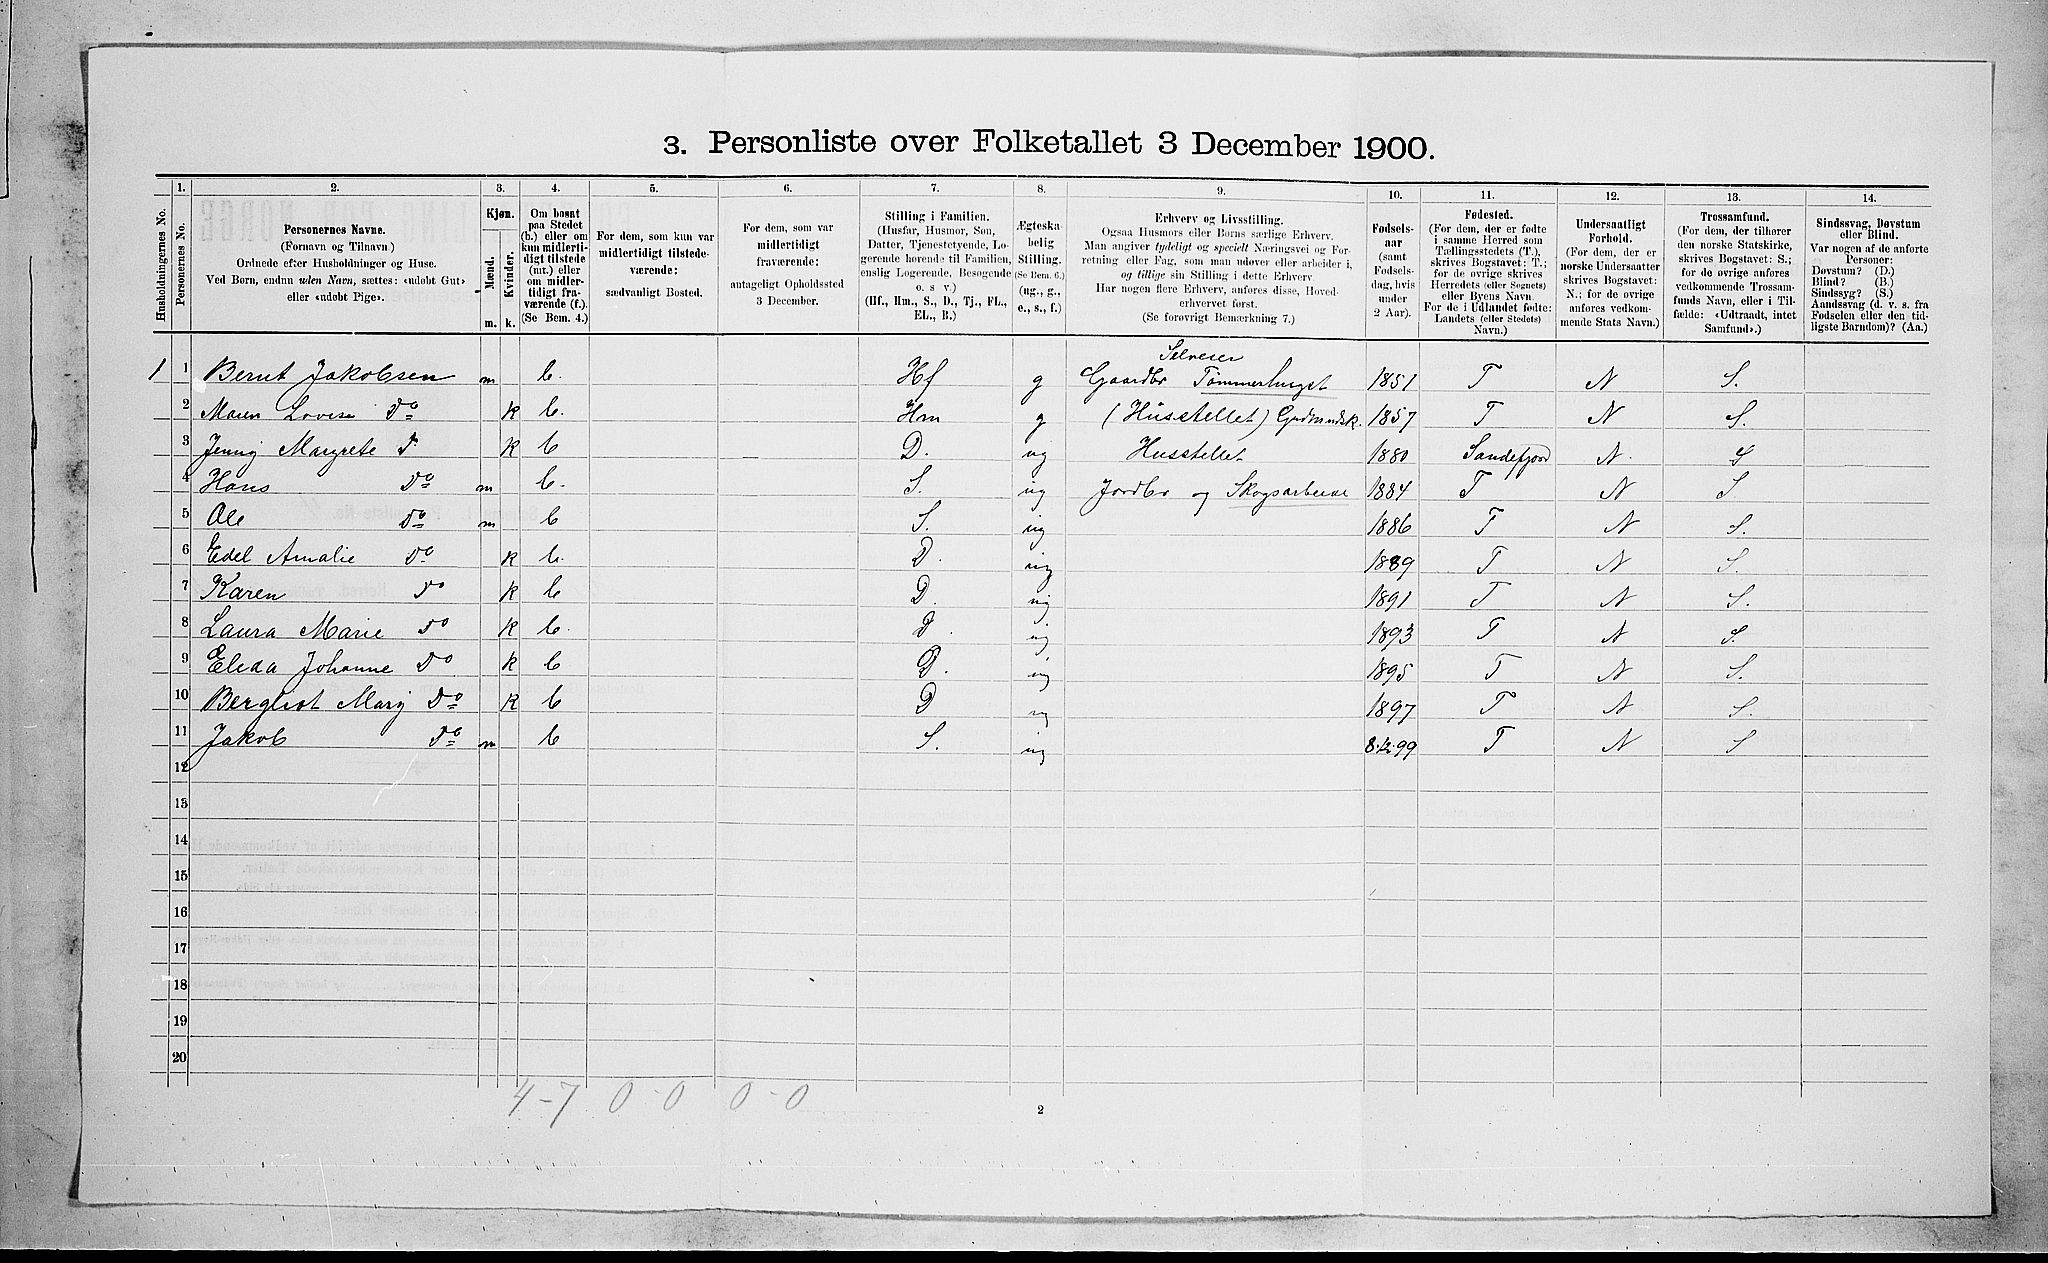 3. Personliste over Folketallet 3 December 1900.
1. 2. 3. 4. 5. 6. 7. 8. 9. 10. 11. 12. 13. 14.
Husholdningernes No.
Personernes No.
Personernes Navne.
(Fornavn og Tilnavn)
Ordnede efter Husholdninger og Huse.
Ved Børn, endnu uden Navn, sættes: «udøbt Gut»
eller «udøbt Pige».
Kjøn.
Mænd.
Kvinder.
m. k.
Om bosat
paa Stedet
(b.) eller om
kun midlerti-
digt tilstede
(mt.) eller
om midler-
tidigt fra-
værende (f.).
(Se Bem. 4.)
For dem, som kun var
midlertidigt tilstede-
værende:
sædvanligt Bosted.
For dem, som var
midlertidigt
fraværende:
antageligt Opholdssted
3 December.
Stilling i Familien.
(Husfar, Husmor, Søn,
Datter, Tjenestetyende, Lo-
gerende hørende til Familien,
enslig Logerende, Besøgende
o. s. v.)
(Hf., Hm., S., D., Tj., FL.,
EL., B.)
Ægteska-
belig
Stilling.
(Se Bem. 6.)
(ug., g.,
e., s., f.)
Erhverv og Livsstilling.
Ogsaa Husmors eller Børns særlige Erhverv.
Man angiver tydeligt og specielt Næringsvei og For-
retning eller Fag, som man udøver eller arbeider i,
og tillige sin Stilling i dette Erhverv.
Har nogen flere Erhverv, anføres disse, Hoved-
erhvervet først.
(Se forøvrigt Bemærkning 7.)
Fødsels-
aar
(samt
Fødsels-
dag, hvis
under
2 Aar).
Fødested.
(For dem, der er fødte
i samme Herred som
Tællingsstedets (T.),
skrives Bogstavet: T.;
for de øvrige skrives
Herredets (eller Sognets)
eller Byens Navn.
For de i Udlandet fødte:
Landets (eller Stedets)
Navn.)
Undersaatligt
Forhold.
(For dem, der er
norske Undersaatter
skrives Bogstavet:
N.; for de øvrige
anføres vedkom-
mende Stats Navn.)
Trossamfund.
(For dem, der tilhører
den norske Statskirke,
skrives Bogstavet: S.;
for de øvrige anføres
vedkommende Trossam-
funds Navn, eller i Til-
fælde: «Udtraadt, intet
Samfund».)
Sindssvag, Døvstum
eller Blind.
Var nogen af de anførte
Personer:
Døvstum? (D.)
Blind? (B.)
Sindssyg? (S.)
Aandssvag (d. v. s. fra
Fødselen eller den tid-
ligste Barndom)? (Aa.)
Selveier
1 1 Bernt Jakobsen m b. Hf g Gaardbr Tømmerhugst 1851 T N S.
2 Maren Lovise Do k b. Hm g (Husstellet) 1857 T N S.
3 Jenny Margrete D. k b D. ug Husstellet 1880 Sandefjord N. S
4 Hans Do m b. S. ug Jordbr og Skogsarbeide 1884 T N S
5 Ole Do m b S. ug 1886 T N S.
6 Edel Amalie Do k b. D. ug 1889 T N S.
7 Karen Do k b D. ug 1891 T N S.
8 Laura Marie Do k b. D. ug 1893 T N S.
9 Elida Johanne Do k b D. ug 1895 T N S.
10 Bergliot Mary Do k b D ug 1897 T N S.
11 Jakob Do m b S. ug 8.12.99 T N S
12
13
14
15
16
17
18
19
20
4-7 0-0 0-0
2